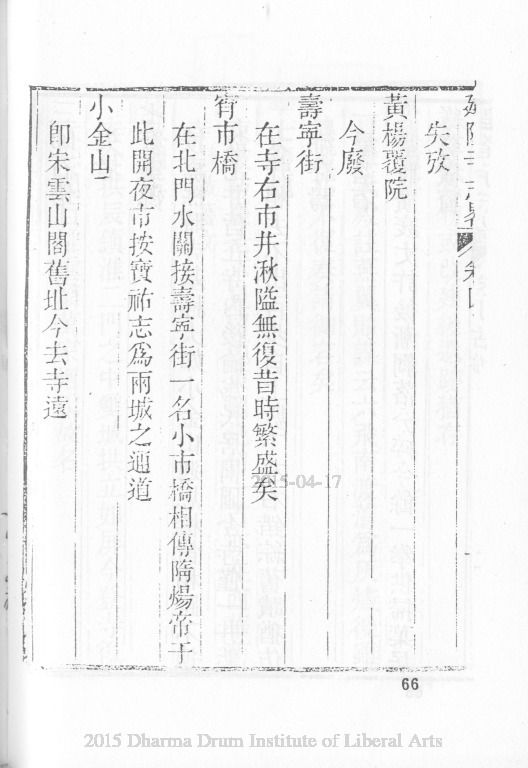 失攷
黃楊覆院
今廢
壽寧街
在寺右市井湫隘無復昔時繁盛矣
宵市橋
在北門水關接壽寧街一名小市橋相傳隋煬帝于
此開夜市按寶祐志爲兩城之通道
小金山
卽宋雲山閣舊址今去寺遠
66
2015-04-17
2015 Dharma Drum Institute of Liberal Arts